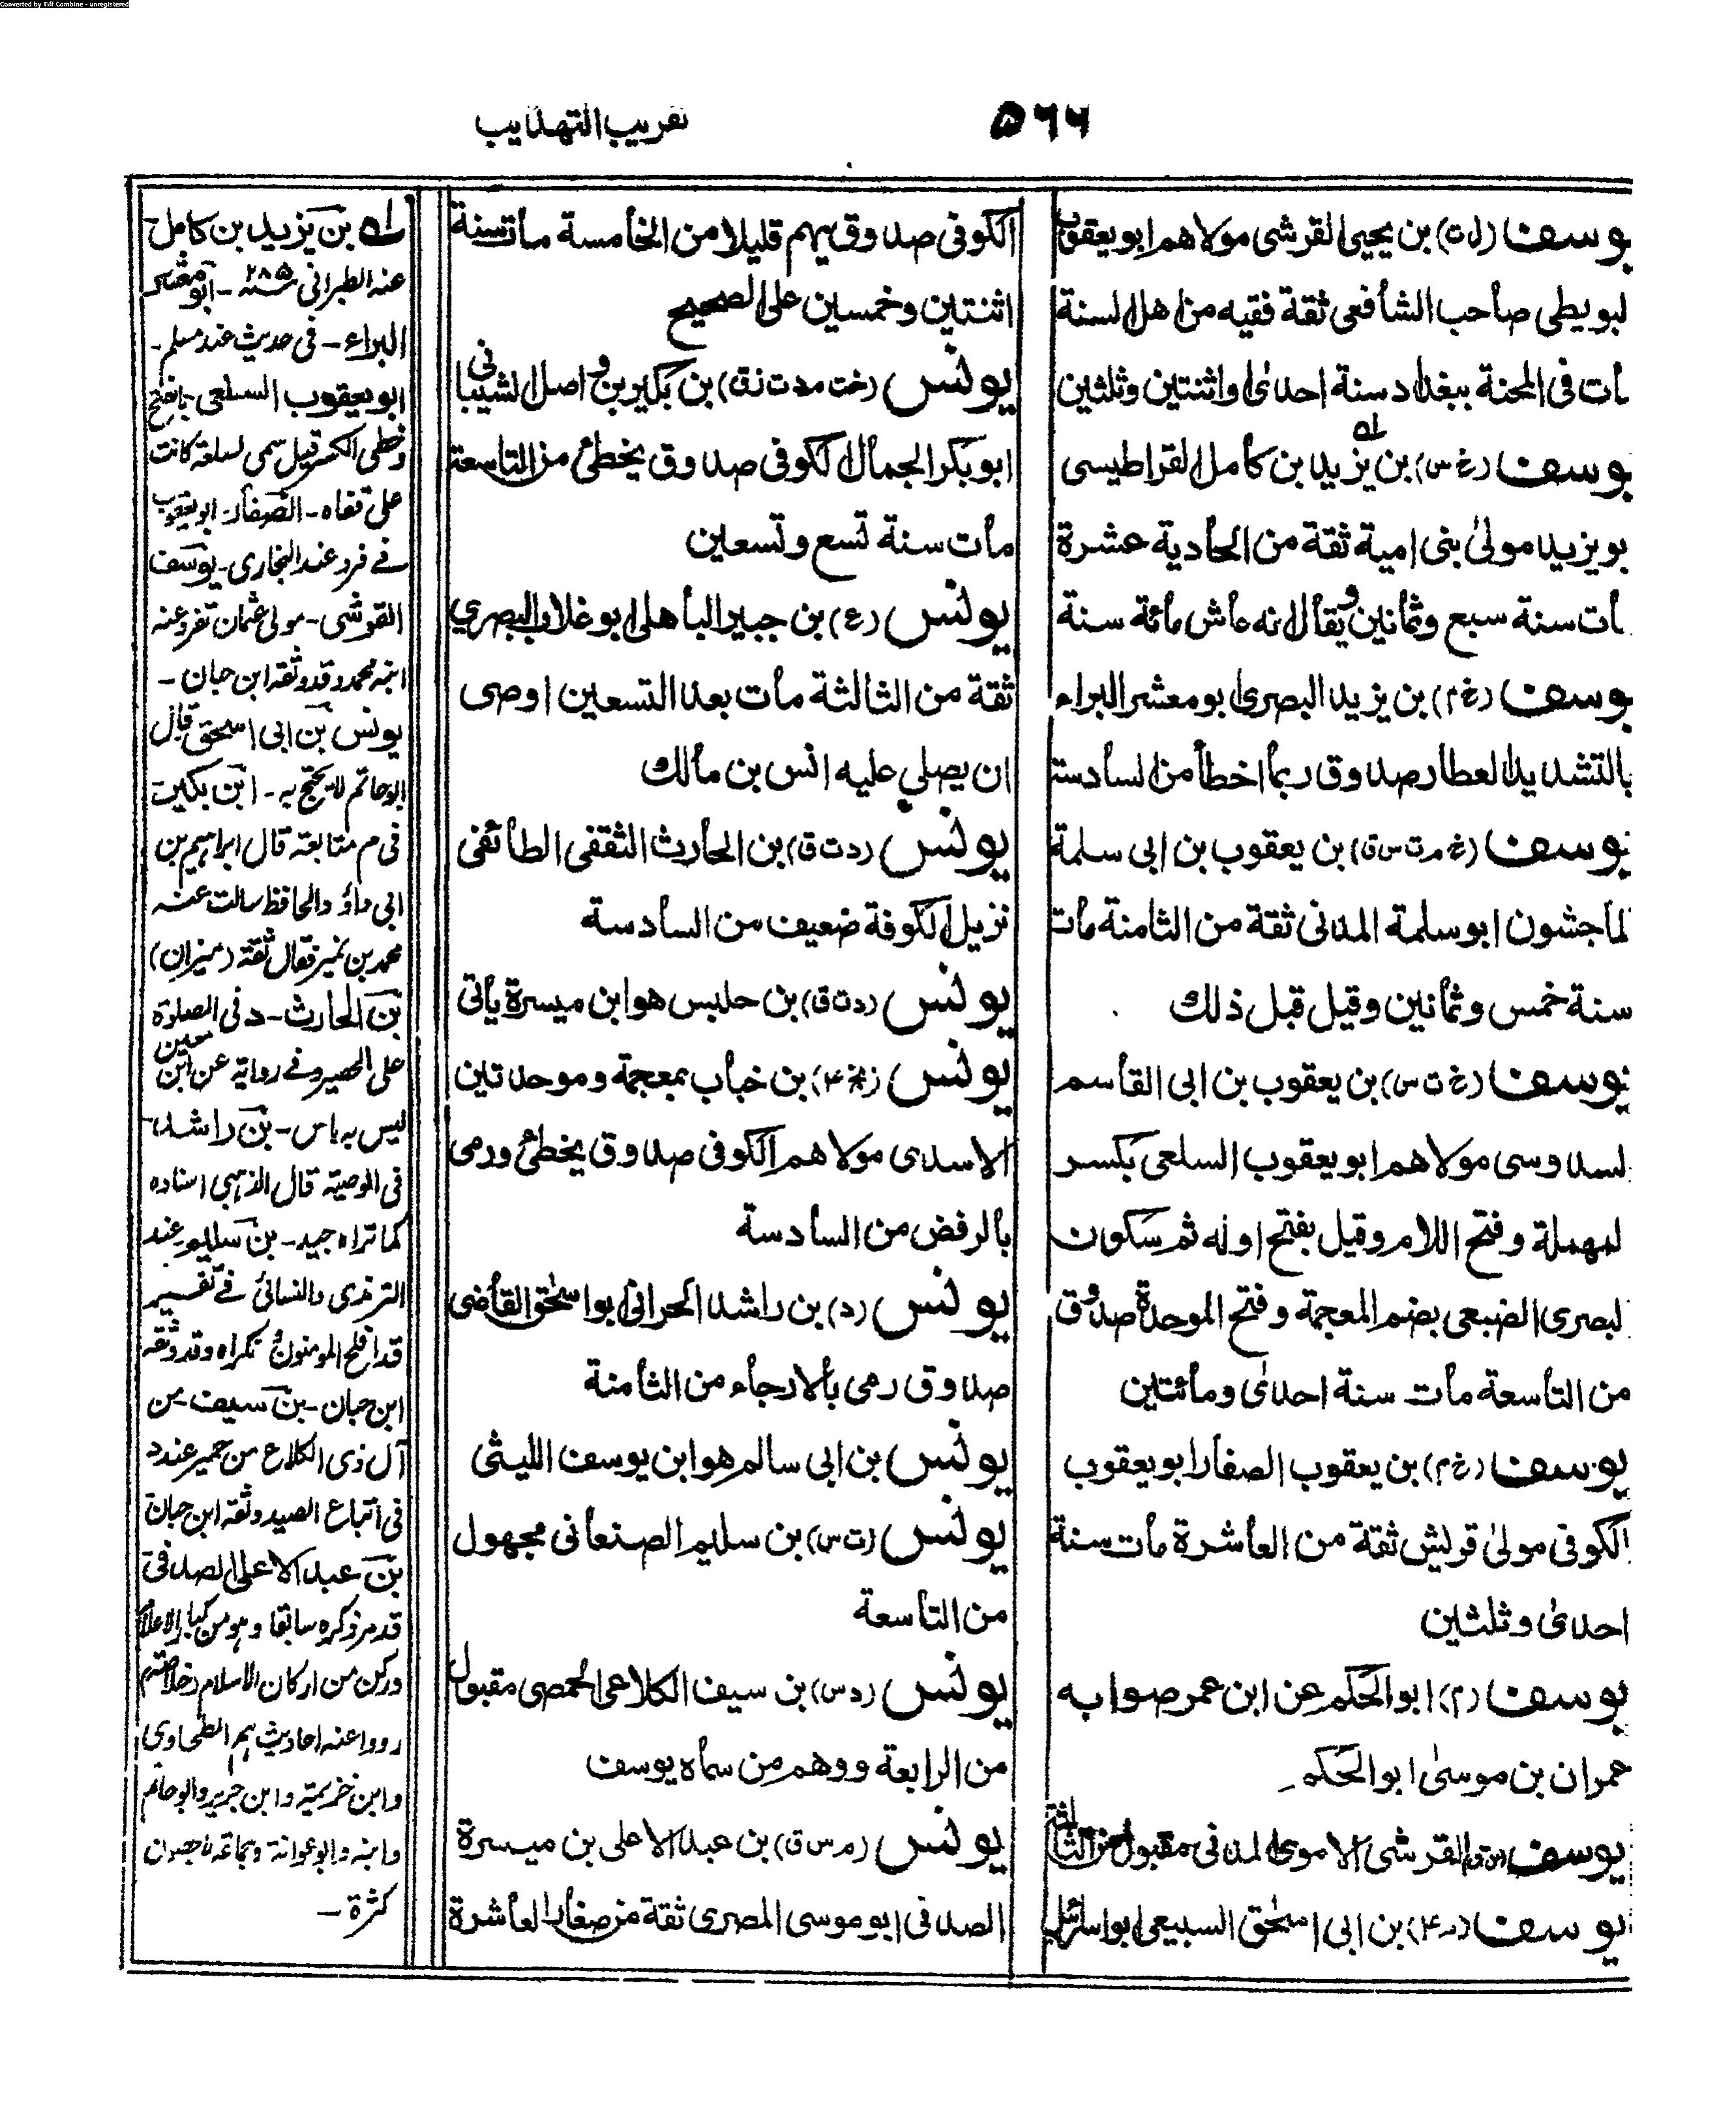 Converted by Tiff Combine - unregistered
۵۶۶
تقريب التهذيب
يوسف (ل ت) بن يحيى القرشى مولاهم ابو يعقوب
لبويطى صاحب الشافعى ثقة فقيه من اهل السنة
مات فى المحنة ببغداد سنة احدى او اثنتين وثلثين
يوسف (س) بن يزيد بن كامل القراطيسى
بو يزيد مولى بنى امية ثقة من الحادية عشرة
مات سنة سبع وثمانين ويقال انه عاش مائة سنة
يوسف (خ م) بن يزيد البصرى ابو معشر البراء
بالتشديد العطار صدوق ربما اخطأ من السادسة
يوسف (خ م ت س ق) بن يعقوب بن ابى سلمة
لماجشون ابو سلمة المدنى ثقة من الثامنة مات
سنة خمس وثمانين وقيل قبل ذلك
يوسف (خ ت س) بن يعقوب بن ابى القاسم
لسدوسى مولاهم ابو يعقوب السلعى بكسر
لمهملة وفتح اللام وقيل بفتح اوله ثم سكون
لبصرى الضبعى بضم المعجمة وفتح الموحدة صدوق
من التاسعة مات سنة احدى ومائتين
يوسف (خ م) بن يعقوب الصفار ابو يعقوب
الكوفى مولى قريش ثقة من العاشرة مات سنة
احدى وثلثين
يوسف (م) ابو الحكم عن ابن عمر صوابه
عمران بن موسى ابو الحكم
يوسف القرشى الاموى المدنى مقبول من الثالثة
يوسف بن ابى اسحق السبيعى ابو اسرائيل
الكوفى صدوق يهم قليلا من الخامسة مات سنة
اثنتين وخمسين على الصحيح
يونس (خت م د ت ق) بن بكير بن واصل الشيبانى
ابو بكر الجمال الكوفى صدوق يخطئ من التاسعة
مات سنة تسع وتسعين
يونس (ع) بن جبير الباهلى ابو غلاب البصرى
ثقة من الثالثة مات بعد التسعين اوصى
ان يصلي عليه انس بن مالك
يونس (د ت ق) بن الحارث الثقفى الطائفى
نزيل الكوفة ضعيف من السادسة
يونس (د ت ق) بن حلبس هو ابن ميسرة يأتى
يونس (بخ ۴) بن خباب بمعجمة وموحدتين
الاسدى مولاهم الكوفى صدوق يخطئ ورمى
بالرفض من السادسة
يونس (د) بن راشد الحرانى ابو اسحق القاضى
صدوق رمى بالارجاء من الثامنة
يونس بن ابى سالم هو ابن يوسف الليثى
يونس (ت س) بن سليم الصنعانى مجهول
من التاسعة
يونس (د س) بن سيف الكلاعى الحمصى مقبول
من الرابعة ووهم من سماه يوسف
يونس (م س ق) بن عبد الاعلى بن ميسرة
الصدفى ابو موسى المصرى ثقة من صغار العاشرة
له بن يزيد بن كامل
عنه الطبرانى ۲۸۵ - ابو معشر
البراء - فى حديث عند مسلم -
ابو يعقوب السلعى بالفتح
وخطى الكسر قيل سمى لسلعة كانت
على قفاه - الصفار ابو يعقوب
فے فرد عند البخارى - يوسف
القرشى - مولى عثمان تفرد عنه
ابنه محمد وقد وثقه ابن حبان -
يونس بن ابى اسحق قال
ابو حاتم لا يحتج به - ابن بكير
فى م متابعة قال ابراهيم بن
ابى داؤد الحافظ سالت عنه
محمد بن نمير فقال ثقة (ميزان)
بن الحارث - د فى الصلوة
على الحصير وفے رواية عن ابن معين
ليس به باس - بن راشد
فى الوصية قال الذهبى اسناده
كما تراه جيد - بن سليم عند
الترمذى والنسائى فے تفسير
قد افلح المومنون نكراه وقد وثقه
ابن حبان - بن سيف من
آل ذى الكلاع من حمير عند د
فى اتباع الصيد وثقه ابن حبان
بن عبد الاعلى الصدفى
قد مر ذكره سابقا وهو من كبار الاعلام
وركن من اركان الاسلام
رووا عنه احاديث بهم الطحاوى
وابن خزيمة وابن جرير وابو حاتم
وابنه وابو عوانة وجماعة
كثرة -